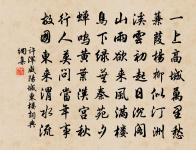 一上高城萬里愁
蒹葭楊柳似汀洲
溪雲初起日沉閣
山雨欲來風滿樓
鳥下綠蕪秦苑夕
蟬鳴黃葉漢宮秋
行人莫問當年事
故國東來渭水流
許渾咸陽城東樓